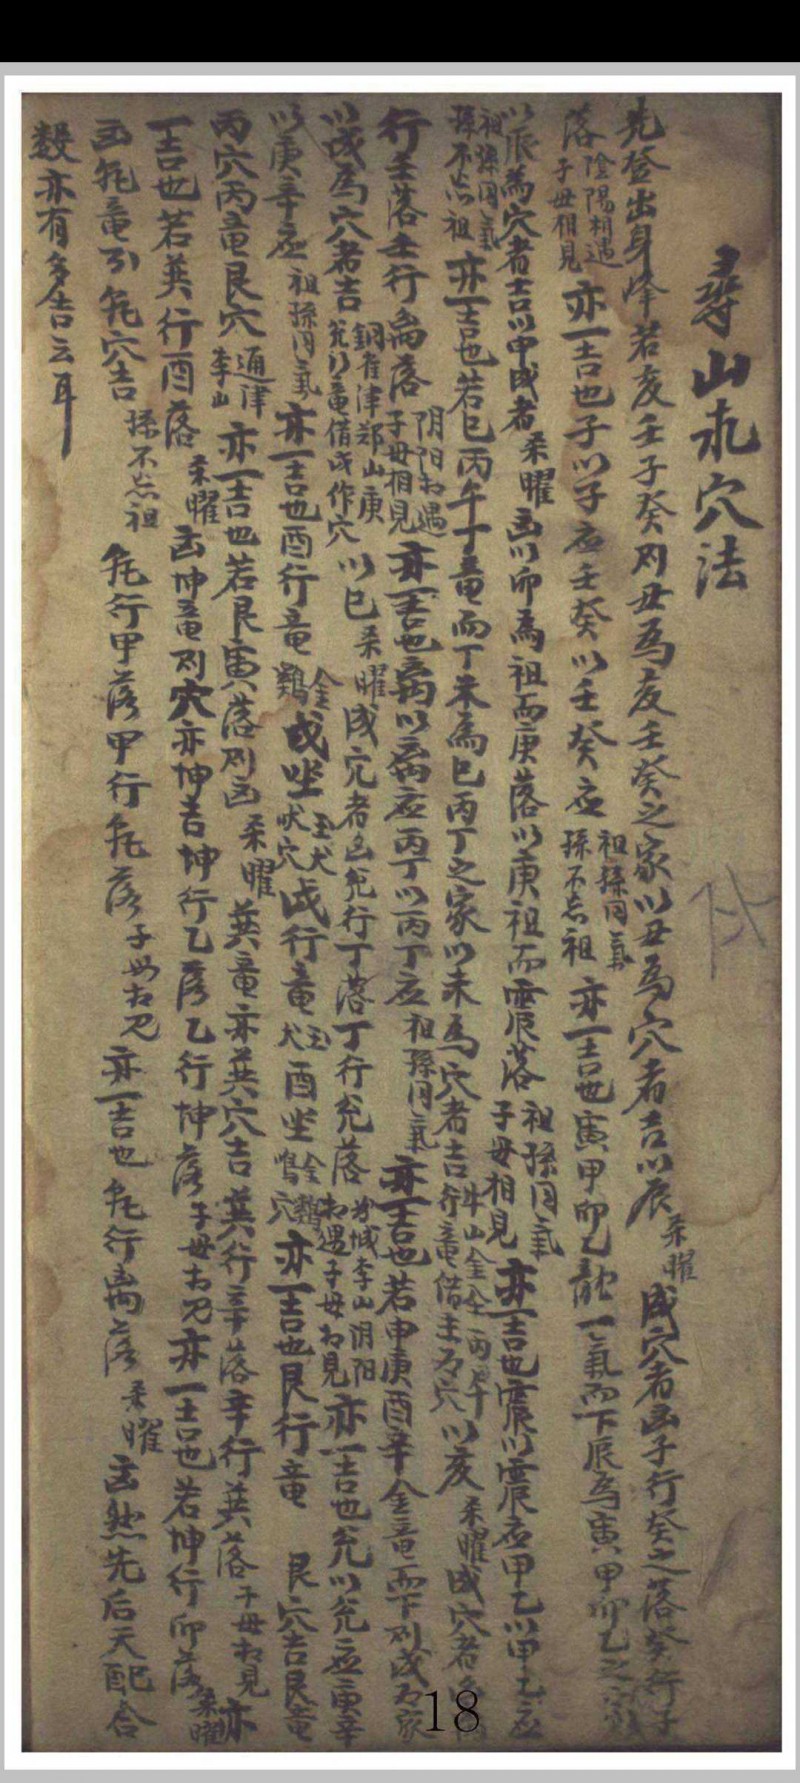 尋山求穴法
先登出身峰若亥壬子癸則丑爲亥壬癸之家以丑爲穴者吉以辰來曜成穴者凶子行癸之落癸行子
落陰陽相遇子母相見亦一吉也子以子應壬癸以壬癸應祖孫同氣孫不忘祖亦一吉也寅甲卯乙龍一氣而下辰爲寅甲卯乙之家
以辰爲穴者吉以申戌者來曜凶以卯爲祖而庚落以庚祖而震落祖孫同氣子母相見亦一吉也震以震應甲乙以甲乙應
祖孫同氣孫不忘祖亦一吉也若巳丙午丁竜而丁未爲巳丙丁之家以未爲穴者吉牛山金全丙午行竜借主爲穴以亥來曜成穴者凶
行壬落壬行离落阴阳相遇子母相見亦一吉也离以离應丙丁以丙丁應祖孫同氣亦一吉也若申庚酉辛金竜而下則戌爲家
以戌爲穴者吉銅雀津郑山庚兌行竜借戌作穴以巳來曜成穴者凶兌行丁落丁行兌落李山阴阳相遇子母相見亦一吉也兌以兌應庚辛
以庚辛應祖孫同氣亦一吉也酉行竜金鷄戌坐玉犬吠穴戌行竜玉犬酉坐金鷄鳴穴亦一吉也艮行竜艮穴吉艮竜
丙穴丙竜艮穴通津李山亦一吉也若艮寅落則凶來曜巽竜亦巽穴吉巽行辛落辛行巽落子母相見亦
一吉也若巽行酉落來曜凶坤竜則穴亦坤吉坤行乙落乙行坤落子母相見亦一吉也若坤行卯落來曜
凶乾竜引乾穴吉孫不忘祖乾行甲落甲行乾落子母相見亦一吉也乾行离落來曜凶然先后天配合
数亦有多吉云耳
18